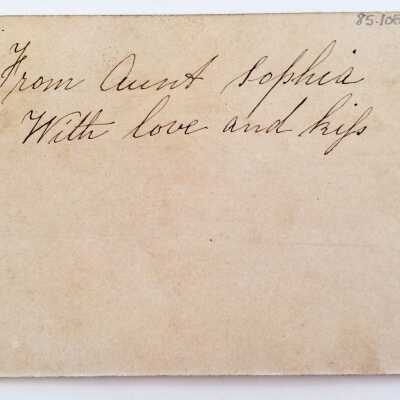 85.108
From Aunt Sophia
With love and kiss